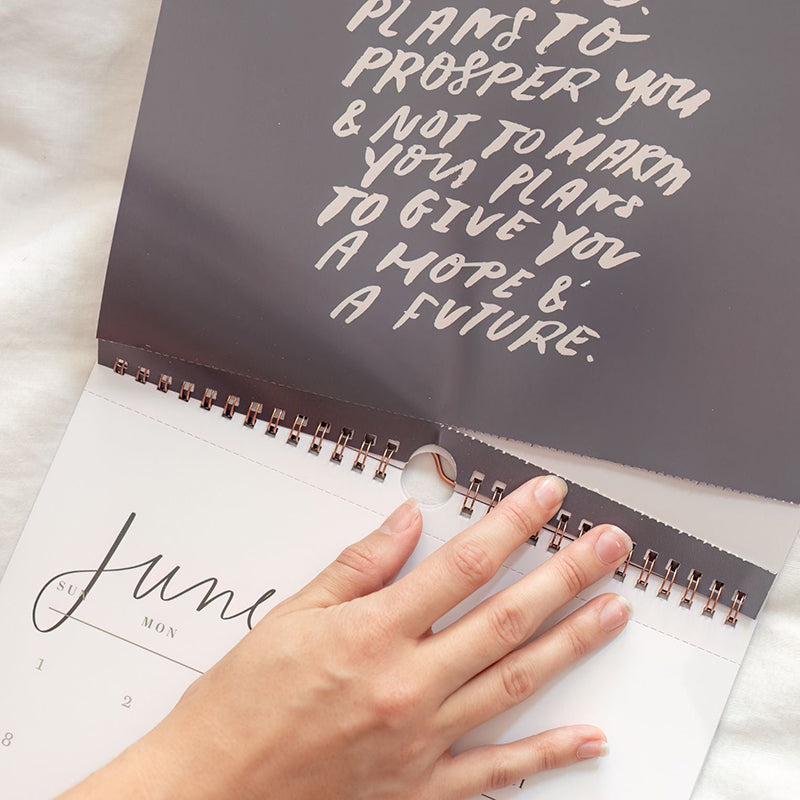 PLANS TO
PROSPER YOU
& NOT TO HARM
YOU PLANS
TO GIVE YOU
A HOPE &
A FUTURE.
June
SUN MON
1 2
8